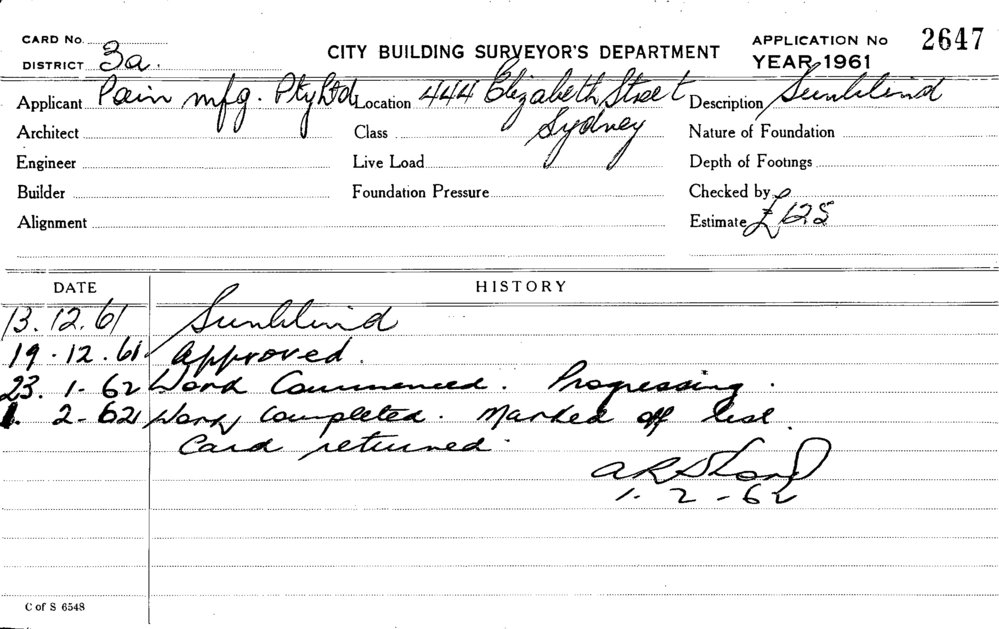 CARD No.
DISTRICT 3a.
CITY BUILDING SURVEYOR'S DEPARTMENT
APPLICATION No 2647
YEAR 1961
Applicant Pain mfg. Pty Ltd Location 444 Elizabeth Street Description Sunblind
Architect Class Sydney Nature of Foundation
Engineer Live Load Depth of Footings
Builder Foundation Pressure Checked by
Alignment Estimate £125
DATE HISTORY
13.12.61 Sunblind
19.12.61 Approved.
23.1.62 Work Commenced. Progressing.
1.2-62 Work Completed. Marked off list.
Card returned.
1.2-62
C of S 6548